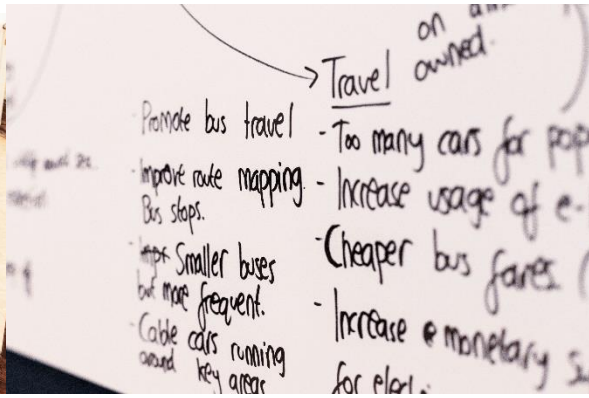 on
owned.
Travel
- Promote bus travel
- Improve route mapping.
Bus stops.
- Smaller buses
but more frequent.
- Cable cars running
around key areas
- Too many cars for pop
- Increase usage of e-
- Cheaper bus fares (
- Increase monetary
for